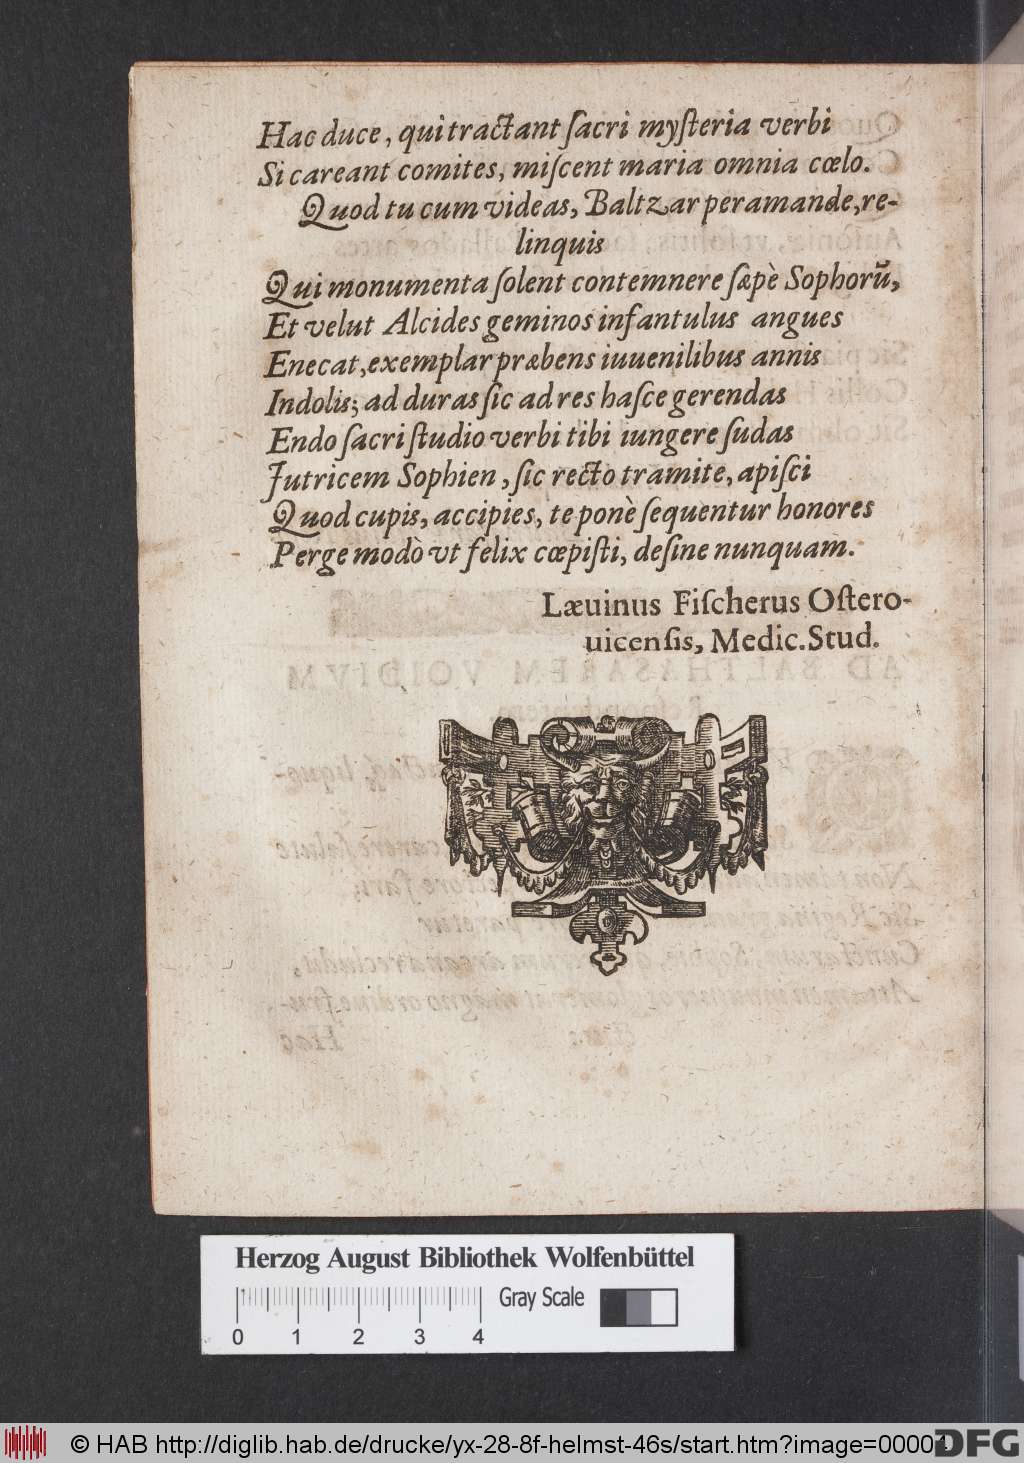 Hac duce, qui tractant ſacri myſteria verbi
Si careant comites, miſcent maria omnia cœlo.
Quod tu cum videas, Baltzar peramande, re-
linquis
Qui monumenta ſolent contemnere ſæpè Sophorū,
Et velut Alcides geminos infantulus angues
Enecat, exemplar præbens iuuenilibus annis
Indolis; ad duras ſic ad res haſce gerendas
Endo ſacri ſtudio verbi tibi iungere ſudas
Jutricem Sophien, ſic recto tramite, apiſci
Quod cupis, accipies, te ponè ſequentur honores
Perge modò vt felix cœpiſti, deſine nunquam.
Læuinus Fiſcherus Oſtero-
uicenſis, Medic. Stud.
Herzog August Bibliothek Wolfenbüttel
Gray Scale
0 1 2 3 4
© HAB http://diglib.hab.de/drucke/yx-28-8f-helmst-46s/start.htm?image=00004
DFG